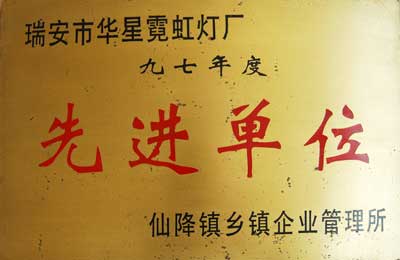 瑞安市华星霓虹灯厂
九七年度
先进单位
仙降镇乡镇企业管理所